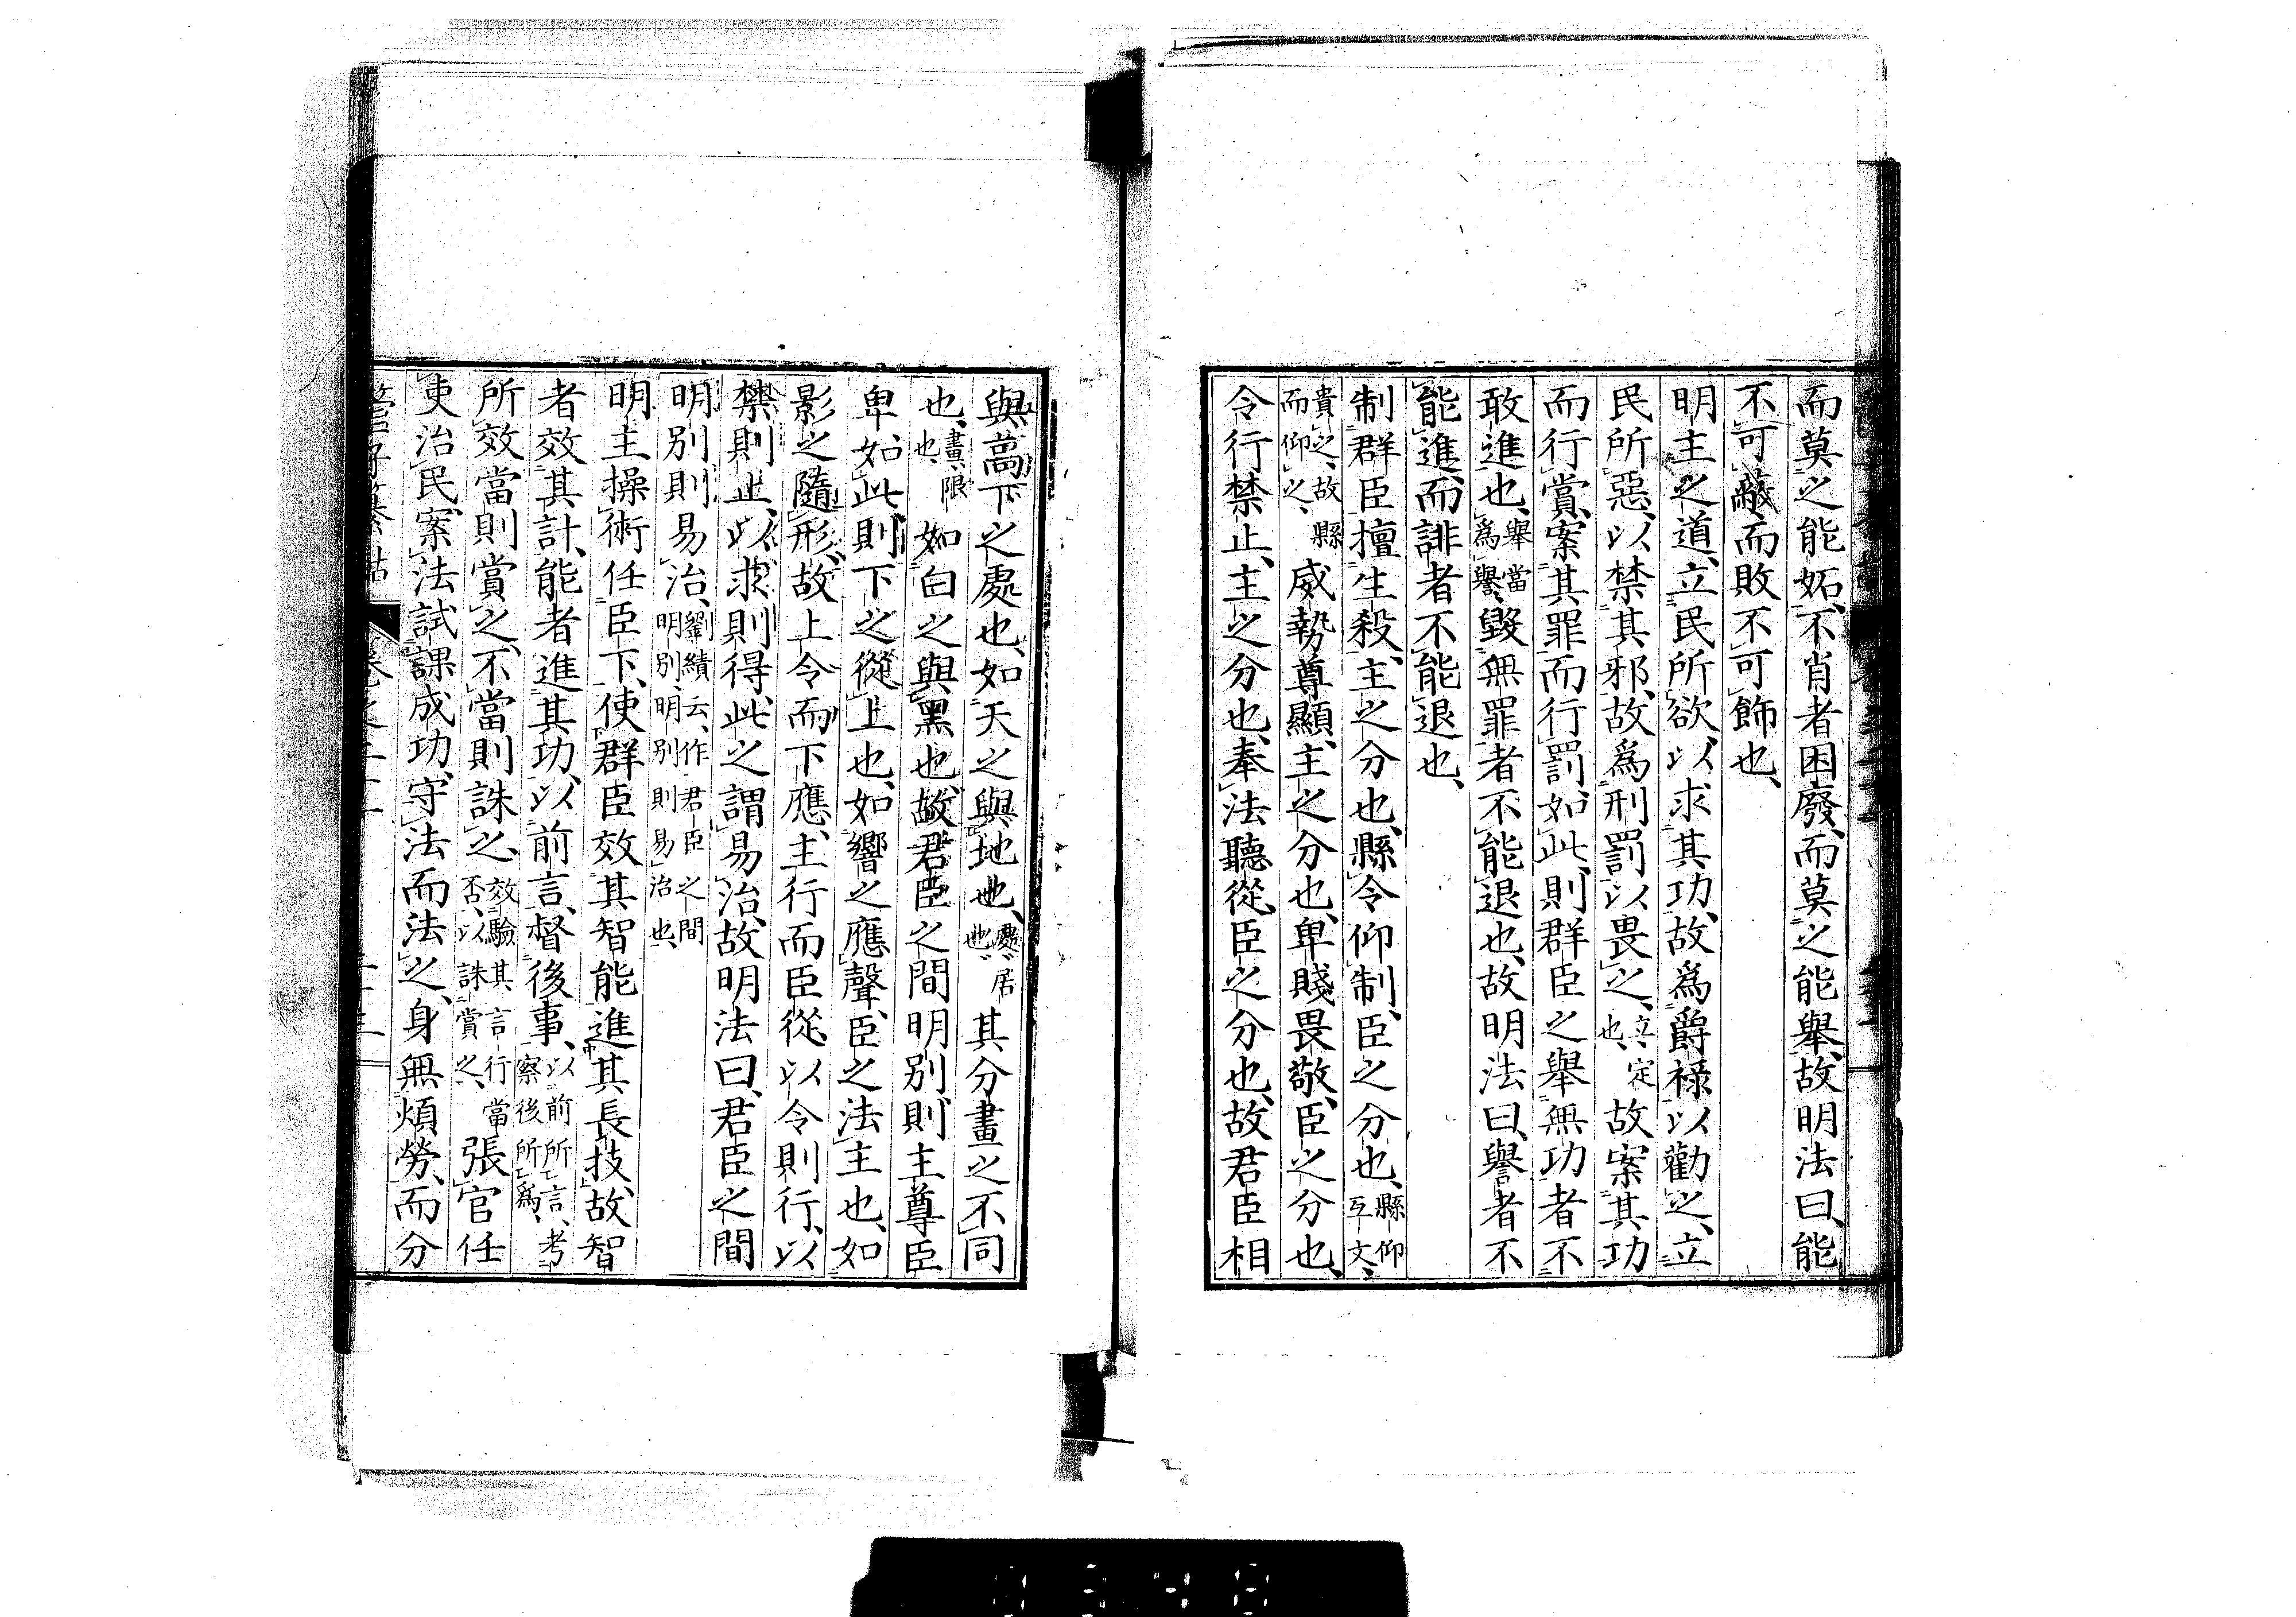 而莫之能妬、不肖者困廢、而莫之能舉、故明法曰、能
不可蔽、而敗不可飾也、
明主之道、立民所欲、以求其功、故爲爵祿以勸之、立
民所惡、以禁其邪、故爲刑罰以畏之、立、定也、故案其功
而行賞、案其罪而行罰、如此、則群臣之舉無功者、不
敢進也、舉當爲譽、毀無罪者、不能退也、故明法曰、譽者不
能進、而誹者不能退也、
制群臣、擅生殺、主之分也、縣令仰制、臣之分也、縣仰互文、
貴之、故縣而仰之、威勢尊顯、主之分也、卑賤畏敬、臣之分也、
令行禁止、主之分也、奉法聽從、臣之分也、故君臣相
與高下之處也、如天之與地也、處、居也、其分畫之不同
也、畫、限也、如白之與黑也、故君臣之間明別、則主尊臣
卑、如此、則下之從上也、如響之應聲、臣之法主也、如
影之隨形、故上令而下應、主行而臣從、以令則行、以
禁則止、以求則得、此之謂易治、故明法曰、君臣之間
明別則易治、劉績云、作君臣之間明別、明別則易治也、
明主操術任臣下、使群臣效其智能、進其長技、故智
者效其計、能者進其功、以前言、督後事、以前所言、考察後所爲、
所效當則賞之、不當則誅之、效驗其言行當否、以誅賞之、張官任
吏治民、案法試課成功、守法而法之、身無煩勞、而分